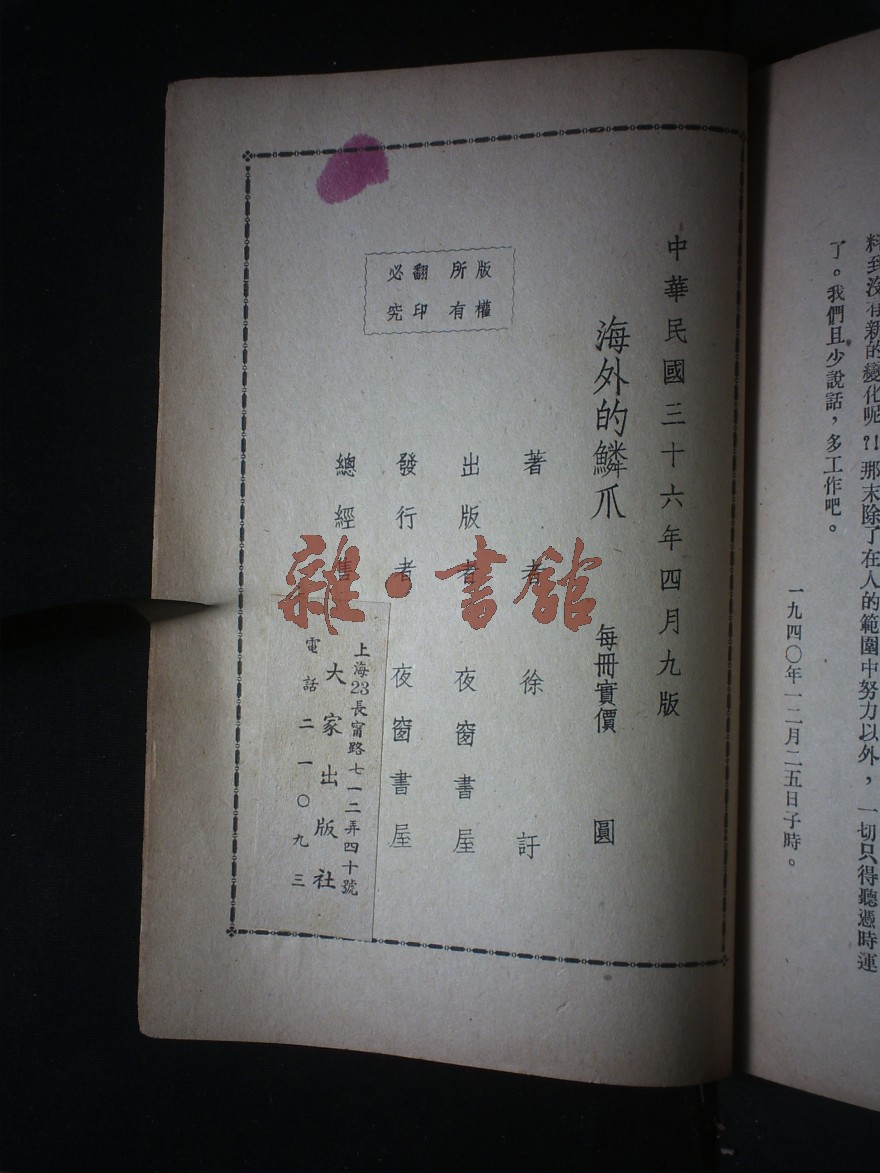 料到沒有新的變化呢？！那末除了在人的範圍中努力以外，一切只得聽憑時運
了。我們且少說話，多工作吧。
一九四〇年一二月二五日子時。
中華民國三十六年四月九版
海外的鱗爪 每冊實價 圓
著者 徐訏
出版者 夜窗書屋
發行者 夜窗書屋
總經售
上海23長甯路七一二弄四十號
大家出版社
電話二一〇九三
版權
所有
翻印
必究
雜·書館